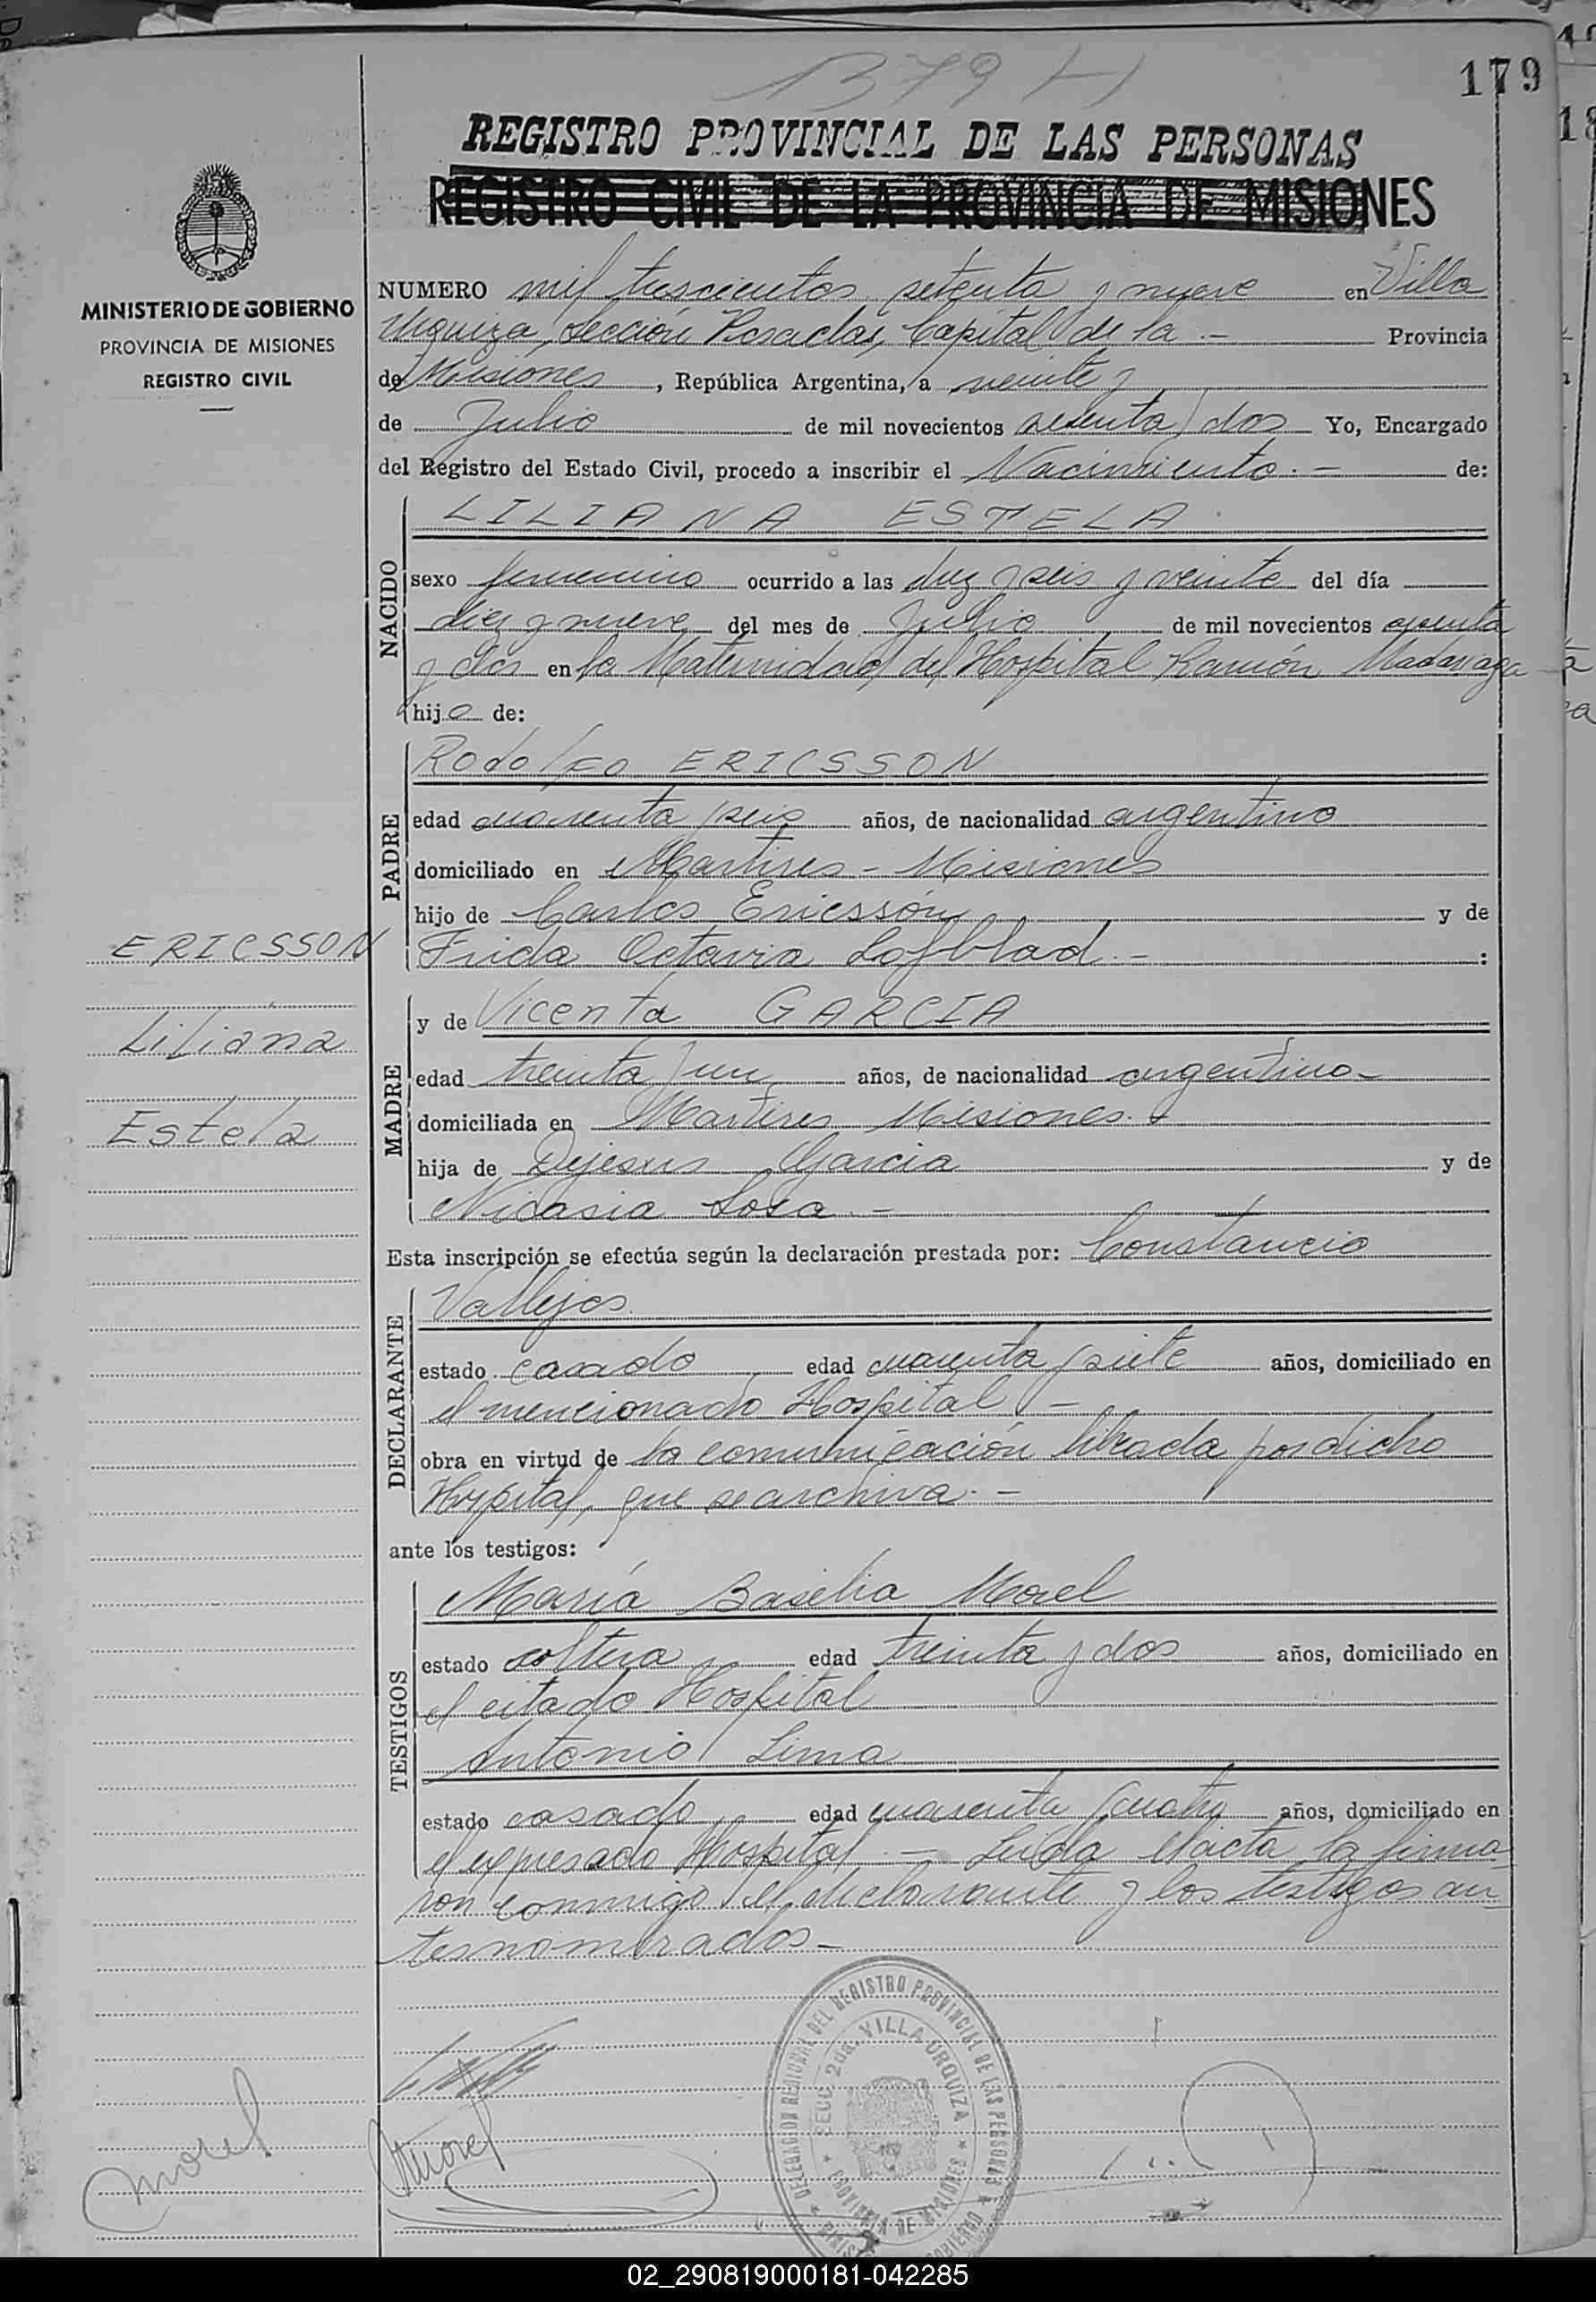 1379 H
179
REGISTRO PROVINCIAL DE LAS PERSONAS
REGISTRO CIVIL DE LA PROVINCIA DE MISIONES
MINISTERIO DE GOBIERNO
PROVINCIA DE MISIONES
REGISTRO CIVIL
NUMERO mil trescientos setenta y nueve en Villa
Urquiza, Sección Posadas, Capital de la .- Provincia
de Misiones, República Argentina, a veinte y
de Julio de mil novecientos setenta y dos Yo, Encargado
del Registro del Estado Civil, procedo a inscribir el Nacimiento.- de:
NACIDO
LILIANA ESTELA.
sexo femenino ocurrido a las diez y seis y veinte del día
diez y nueve del mes de Julio de mil novecientos setenta
y dos en la Maternidad del Hospital Ramón Madariaga
hijo de:
PADRE
Rodolfo ERICSSON
edad cuarenta y seis años, de nacionalidad argentino
domiciliado en Martires - Misiones
hijo de Carlos Ericssón y de
Frida Octavia Lofblad.- :
ERICSSON
Liliana
Estela
MADRE
y de Vicenta GARCIA
edad treinta y un años, de nacionalidad argentina-
domiciliada en Martires Misiones.
hija de Dejesus Garcia y de
Nicasia Sosa.-
Esta inscripción se efectúa según la declaración prestada por: Constancio
DECLARANTE
Vallejos
estado casado edad cuarenta y siete años, domiciliado en
el mencionado Hospital -
obra en virtud de la comunicación librada por dicho
Hospital, que se archiva.-
ante los testigos:
TESTIGOS
María Basilia Morel
estado soltera edad treinta y dos años, domiciliado en
el citado Hospital
Antonio Lima
estado casado edad cuarenta y cuatro años, domiciliado en
el expresado Hospital.- Leida el acta la firma-
ron conmigo el declarante y los testigos an-
tesnombrados-
Morel
Morel
DELEGACION REGIONAL DEL REGISTRO PROVINCIAL DE LAS PERSONAS
SECC. 2da. VILLA URQUIZA
PROVINCIA DE MISIONES
02_290819000181-042285